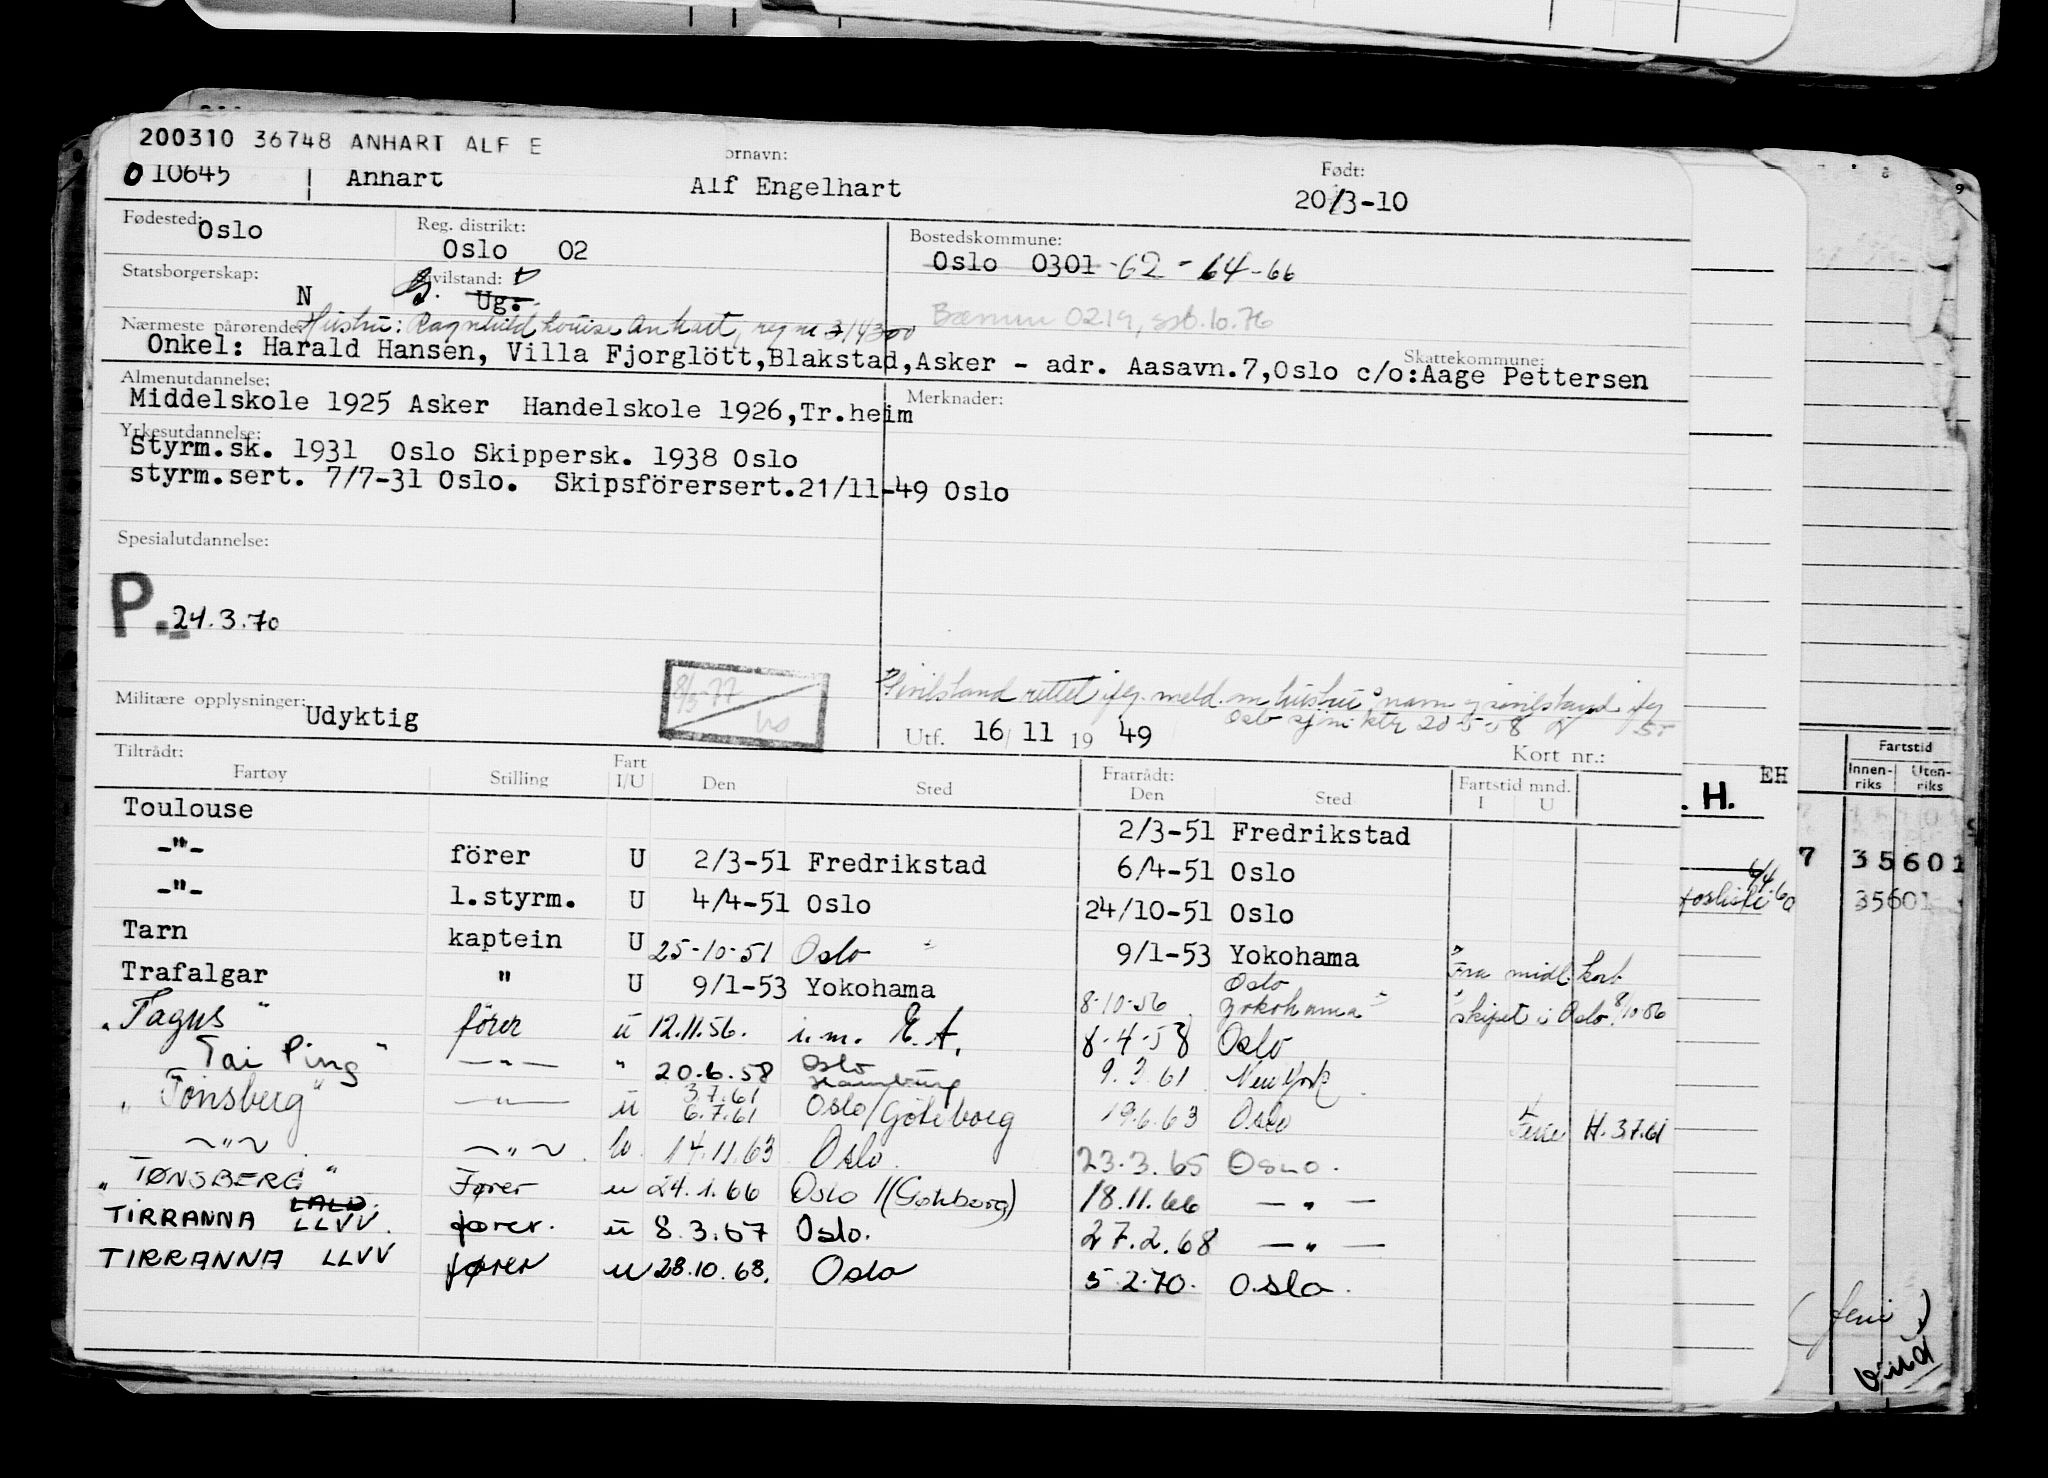 200310 36748 ANHART ALF E
ornavn:
Født:
0 10645 Anhart Alf Engelhart 20/3-10
Fødested: Oslo
Reg. distrikt: Oslo 02
Bostedskommune: Oslo 0301 -62 - 64-66
Statsborgerskap: N
Sivilstand: G. Ug.
Bærum 0219, ssb. 10.76
Nærmeste pårørende: Hustru: Ragnhild Louise Anhart, reg nr 314300
Onkel: Harald Hansen, Villa Fjorglött,Blakstad,Asker - adr. Aasavn.7,Oslo c/o:Aage Pettersen
Skattekommune:
Almenutdannelse:
Middelskole 1925 Asker Handelskole 1926,Tr.heim
Merknader:
Yrkesutdannelse:
Styrm.sk. 1931 Oslo Skippersk. 1938 Oslo
styrm.sert. 7/7-31 Oslo. Skipsförersert.21/11-49 Oslo
Spesialutdannelse:
P. 24.3.70
Sivilstand rettet ifg. meld. m hustru's navn og sivilstand ifg
Oslo sjm.ktr 20-5-58
Militære opplysninger: Udyktig
8/3-77
Utf. 16 11 19 49
Kort nr.:
Tiltrådt:
Fartøy Stilling Fart I/U Den Sted
Fratrådt:
Den Sted
Fartstid mnd.
I U
Toulouse 2/3-51 Fredrikstad
-"- förer U 2/3-51 Fredrikstad 6/4-51 Oslo
-"- 1.styrm. U 4/4-51 Oslo 24/10-51 Oslo
Tarn kaptein U 25-10-51 Oslo 9/1-53 Yokohama
Fra midl. kort
Trafalgar " U 9/1-53 Yokohama 8-10-56 Oslo Yokohama
skipet i Oslo 8/10-56
"Tagus" fører u 12.11.56. i.m. E.A. 8-4-58 Oslo
Tai Ping" —"— " 20.6.58 Oslo 9.3.61 New York
Hamburg
"Tønsberg" —"— u 3.7.61 6.7.61 Oslo/Göteborg 19.6.63 Oslo
Ferie H. 3.7.61
—"— —"— 14.11.63 Oslo 23.3.65 Oslo.
"TØNSBERG" Fører u 24.1.66 Oslo (Göteborg) 18.11.66 — " —
TIRRANNA LALD LLVV. fører. u 8.3.67 Oslo. 27.2.68 — " —
TIRRANNA LLVV fører u 28.10.68. Oslo 5.2.70. Oslo.
EH
. H.
Fartstid
Innen-riks Uten-riks
7 35601
35601